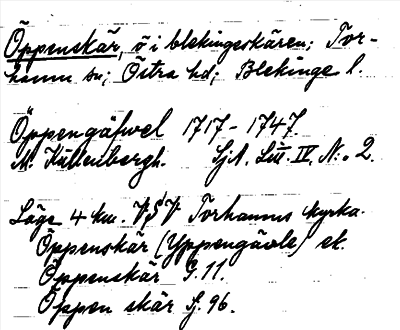 Öppenskär, ö i blekingeskären; Tor-
hamn sn; Östra hd; Blekinge l.
Öppengäfwel 1717-1747.
M. Källenbergh. Sjk. Litt. IV. N:o 2
Läge 4 km. VSV Torhamns kyrka.
Öppenskär (Yppengävle) ek.
Öppenskär G. 11.
Öppen skär Sj. 96.